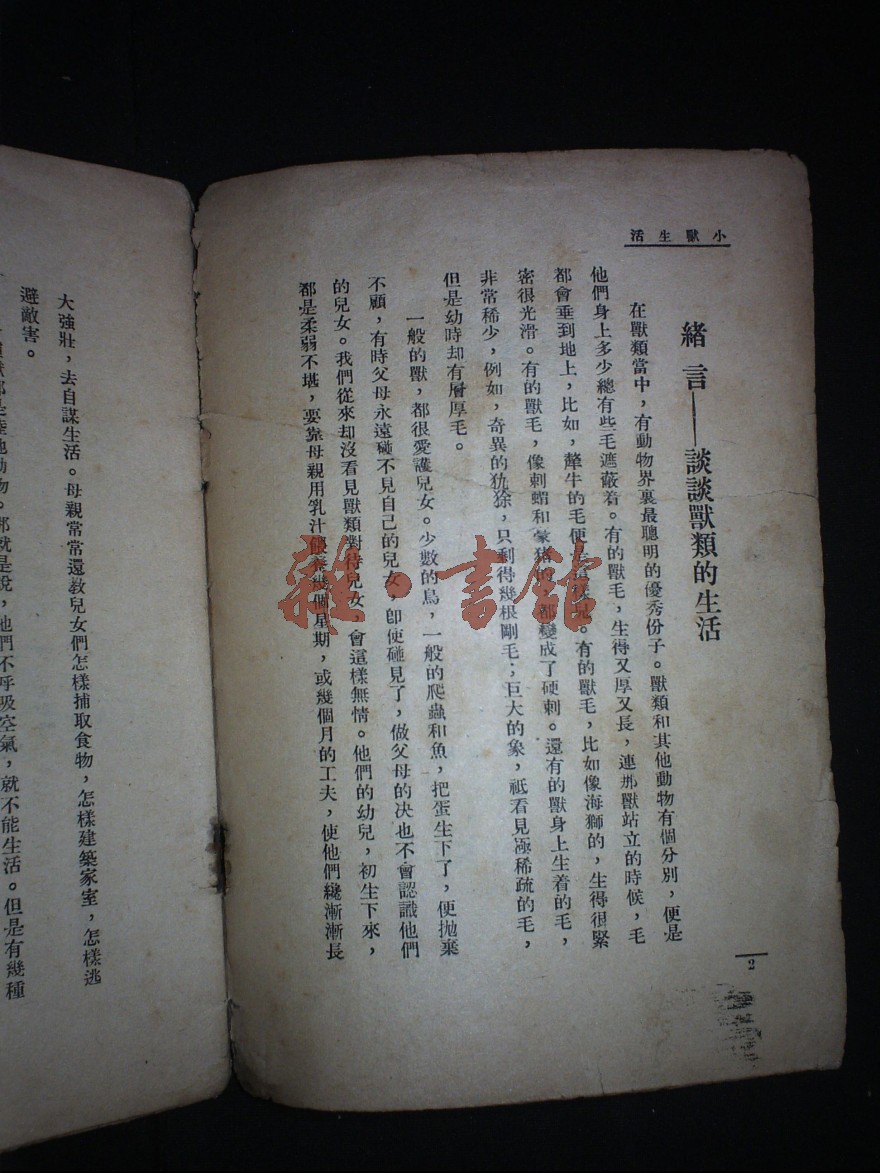 小獸生活
緒言——談談獸類的生活
在獸類當中，有動物界裏最聰明的優秀份子。獸類和其他動物有個分別，便是
他們身上多少總有些毛遮蔽着。有的獸毛，生得又厚又長，連那獸站立的時候，毛
都會垂到地上，比如，犛牛的毛便是這樣兒。有的獸毛，比如像海獅的，生得很緊
密很光滑。有的獸毛，像刺蝟和豪猪的，都變成了硬刺。還有的獸身上生着的毛，
非常稀少，例如，奇異的犰狳，只剩得幾根剛毛；巨大的象，祇看見極稀疏的毛，
但是幼時却有層厚毛。
一般的獸，都很愛護兒女。少數的鳥，一般的爬蟲和魚，把蛋生下了，便拋棄
不顧，有時父母永遠碰不見自己的兒女，卽使碰見了，做父母的决也不會認識他們
的兒女。我們從來却沒看見獸類對待兒女，會這樣無情。他們的幼兒，初生下來，
都是柔弱不堪，要靠母親用乳汁餵養幾個星期，或幾個月的工夫，使他們纔漸漸長
2
大強壯，去自謀生活。母親常常還教兒女們怎樣捕取食物，怎樣建築家室，怎樣逃
避敵害。
動物。那就是說，他們不呼吸空氣，就不能生活。但是有幾種
雜·書館